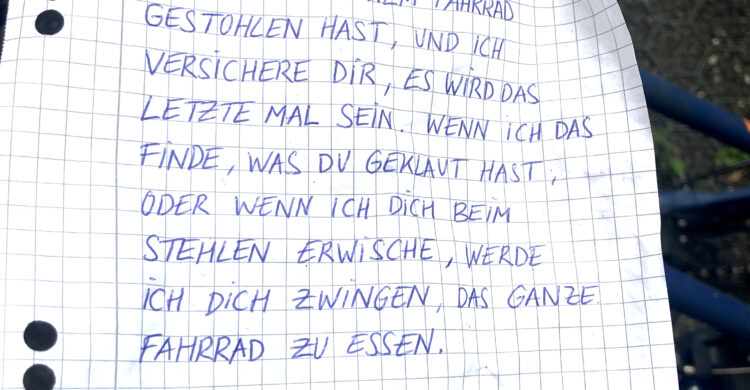 FAHRRAD
GESTOHLEN HAST, UND ICH
VERSICHERE DIR, ES WIRD DAS
LETZTE MAL SEIN. WENN ICH DAS
FINDE, WAS DU GEKLAUT HAST,
ODER WENN ICH DICH BEIM
STEHLEN ERWISCHE, WERDE
ICH DICH ZWINGEN, DAS GANZE
FAHRRAD ZU ESSEN.